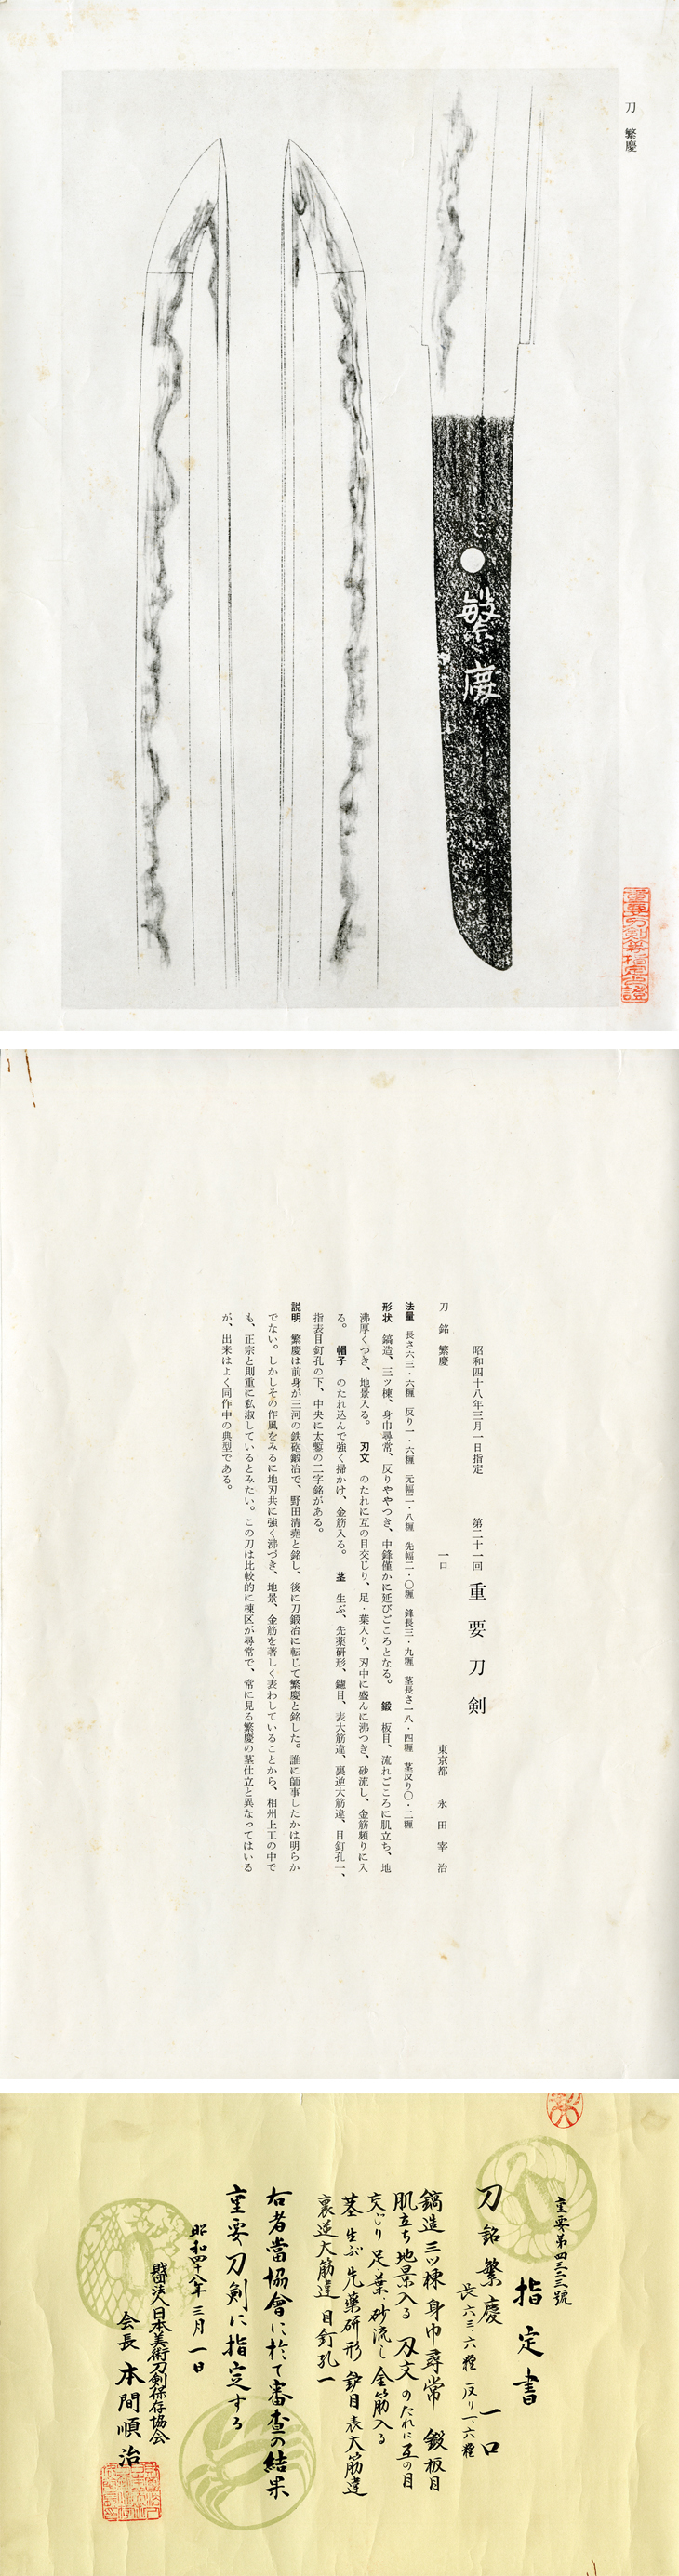 刀 繁慶
繁慶
重要刀剣等指定之證
昭和四十八年三月一日指定 第二十一回 重要刀剣
刀 銘 繁慶 一口 東京都 永田宰治
法量 長さ六三・六糎 反り一・六糎 元幅二・八糎 先幅二・〇糎 鋒長三・九糎 茎長さ一八・四糎 茎反り〇・二糎
形状 鎬造、三ツ棟、身巾尋常、反りややつき、中鋒僅かに延びごころとなる。 鍛 板目、流れごころに肌立ち、地
沸厚くつき、地景入る。 刃文 のたれに互の目交じり、足・葉入り、刃中に盛んに沸つき、砂流し、金筋頻りに入
る。 帽子 のたれ込んで強く掃かけ、金筋入る。 茎 生ぶ、先薬研形、鑢目、表大筋違、裏逆大筋違、目釘孔一、
指表目釘孔の下、中央に太鏨の二字銘がある。
説明 繁慶は前身が三河の鉄砲鍛冶で、野田清堯と銘し、後に刀鍛冶に転じて繁慶と銘した。誰に師事したかは明らか
でない。しかしその作風をみるに地刃共に強く沸づき、地景、金筋を著しく表わしていることから、相州上工の中で
も、正宗と則重に私淑しているとみたい。この刀は比較的に棟区が尋常で、常に見る繁慶の茎仕立と異なってはいる
が、出来はよく同作中の典型である。
重要第四三二三號
指定書
刀 銘 繁慶 一口
長 六三、六糎 反り 一、六糎
鎬造 三ツ棟 身巾尋常 鍛 板目
肌立ち 地景入る 刃文 のたれに互の目
交じり 足 葉、砂流し 金筋入る
茎 生ぶ 先薬研形 鑢目 表大筋違
裏逆大筋違 目釘孔一
右者當協會に於て審査の結果
重要刀剣に指定する
昭和四十八年三月一日
財團法人日本美術刀剣保存協会
会長 本間順治